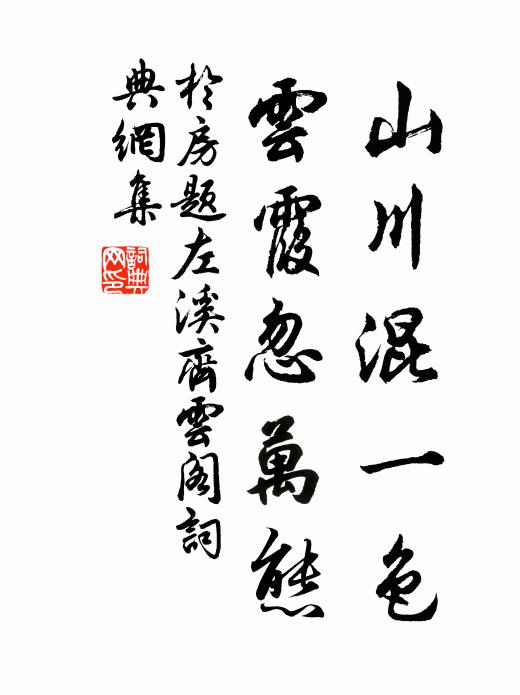 山川混一色
雲霞忽萬態
於房題左溪齊雲閣詞
典網集
詞典
网印